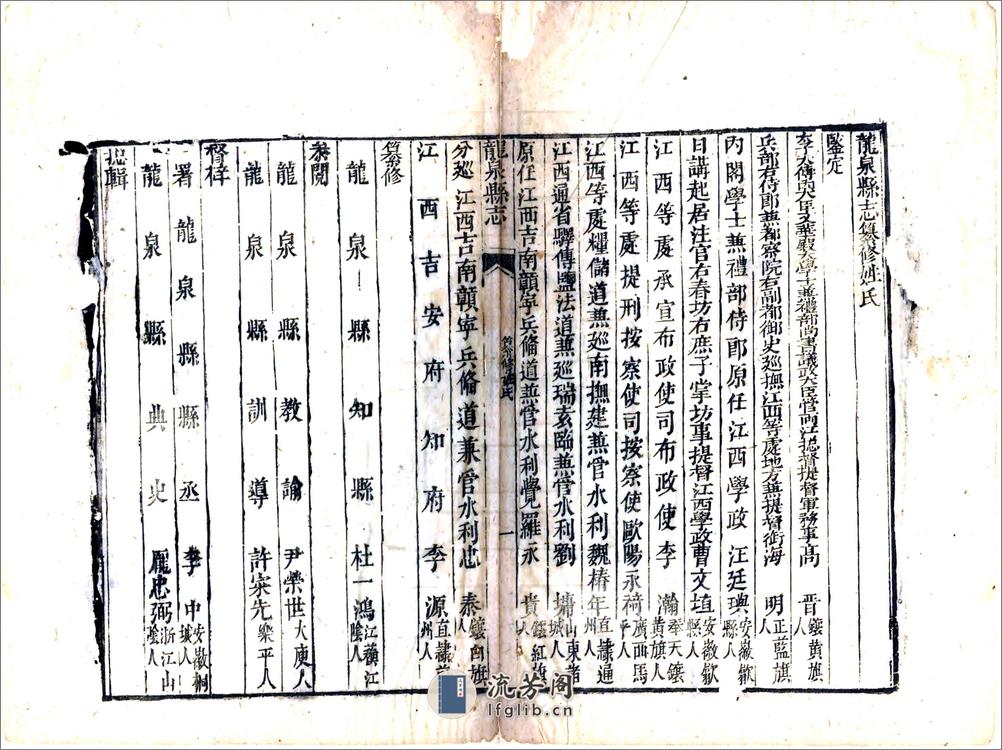 龍泉縣志纂修姓氏
鑒定
太傅文華殿大學士兼禮部尚書議政大臣管兩江總督提督軍務事高 晋 鑲黃旗人
兵部右侍郎兼都察院右副都御史巡撫江西等處地方兼提督銜海 明 正藍旗人
內閣學士兼禮部侍郎原任江西學政 汪廷璵 安徽歙縣人
日講起居注官右春坊右庶子掌坊事提督江西學政曹文埴 安徽歙縣人
江西等處承宣布政使司布政使李 瀚 奉天鑲黃旗人
江西等處提刑按察使司按察使歐陽永䄎 廣西馬平人
江西等處糧儲道兼巡南撫建兼管水利魏椿年 直隸通州人
江西通省驛傳鹽法道兼巡瑞袁臨兼管水利劉 墉 山東諸城人
原任江西吉南贛寧兵備道兼管水利覺羅永 貴 鑲紅旗人
龍泉縣志 纂修姓氏 一
分巡江西吉南贛寧兵備道兼管水利忠 泰 鑲白旗人
江西吉安府知府李 源 直隸 州人
纂修
龍泉縣知縣 杜一鴻 江蘇江陰人
叅閱
龍泉縣教諭 尹榮世 大庾人
龍泉縣訓導 許寀先 樂平人
督梓
署龍泉縣縣丞 李 中 安徽桐城人
龍泉縣典史 龎忠弼 浙江山陰人
總輯
流芳阁
lfglib.cn